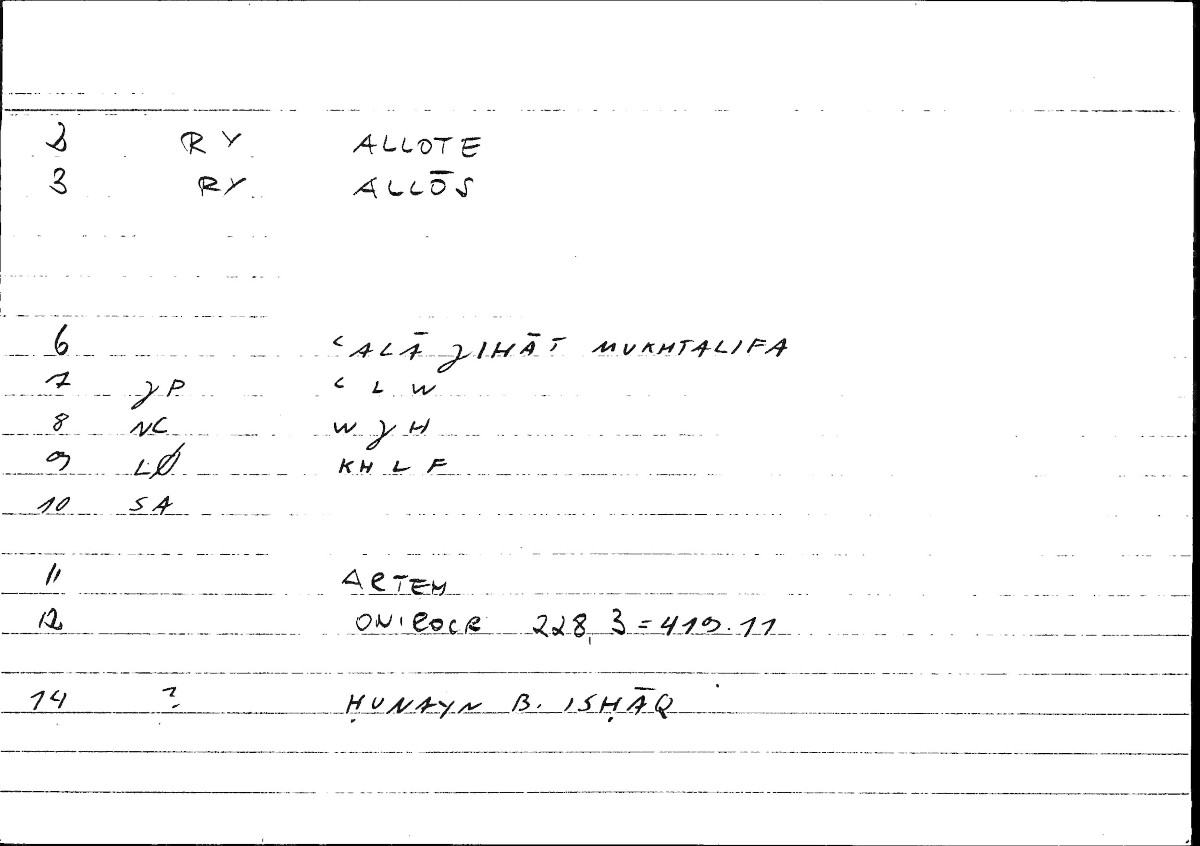 2 RY ALLOTE
3 RY ALLŌS
6 ʿALĀ JIHĀT MUKHTALIFA
7 JP ʿ L W
8 NC W J H
9 LØ KH L F
10 SA
11 ARTEM
12 ONIROCR 228, 3 = 419.11
14 ? ḤUNAYN B. ISḤĀQ